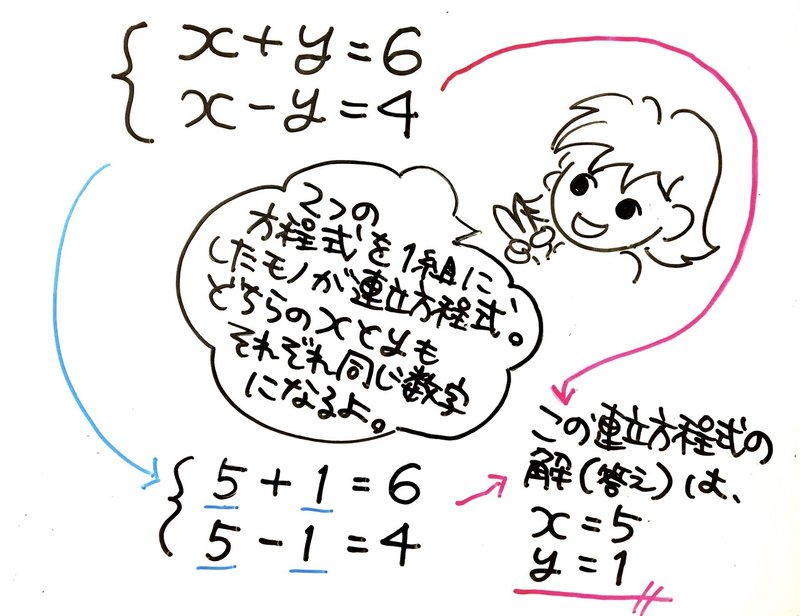 x+y=6
x-y=4
2つの
方程式を1組に
したモノが連立方程式。
どちらのxとyも
それぞれ同じ数字
になるよ。
5+1=6
5-1=4
この連立方程式の
解(答え)は、
x=5
y=1